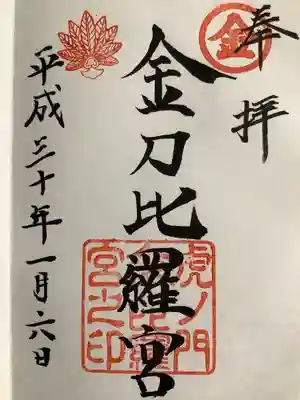 奉拝
金
金刀比羅宮
虎ノ門
金刀比羅
宮之印
平成三十年一月六日